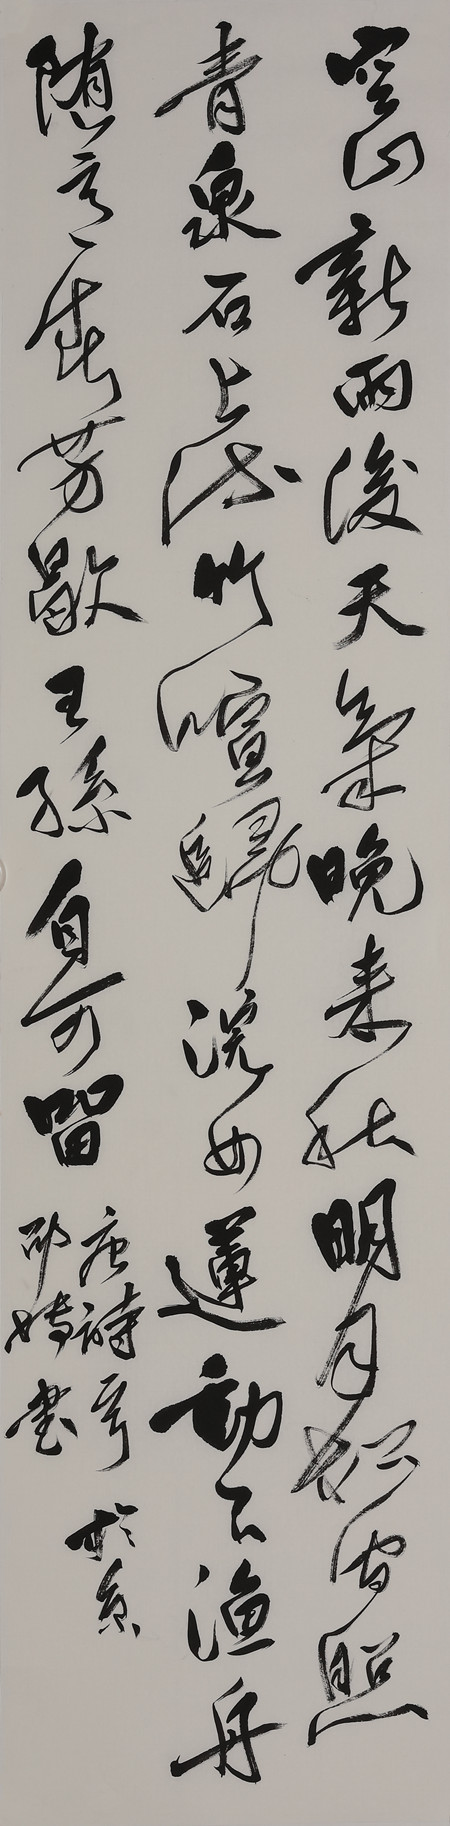 空山新雨後天氣晚来秋明月松間照
青泉石上流竹喧歸浣女蓮動下渔舟
随意春芳歇王孫自可留
唐詩 於京
書